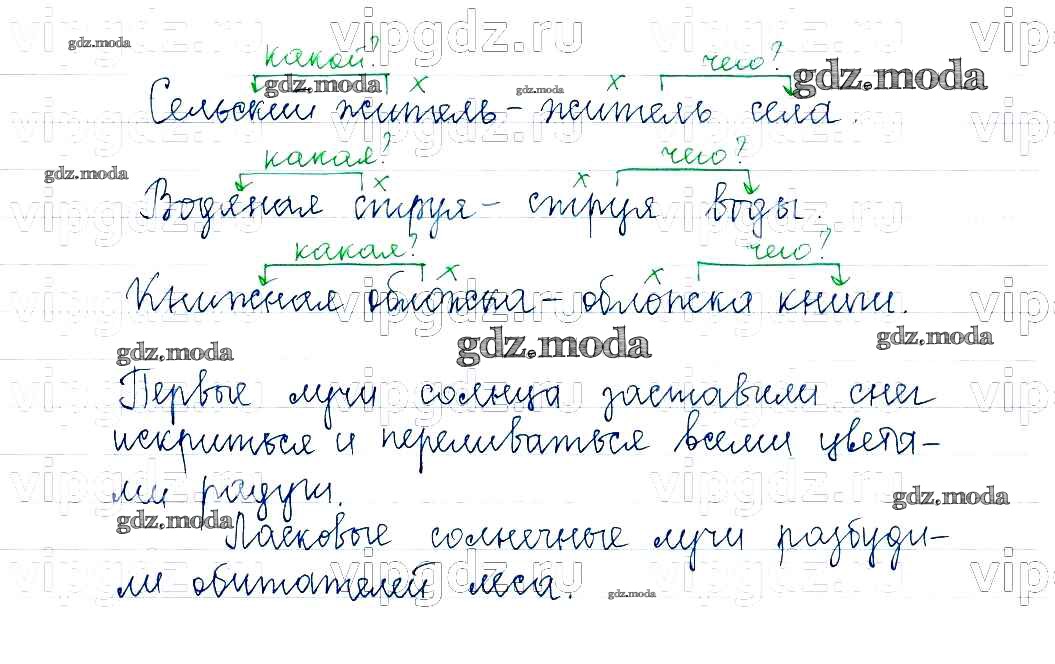 какой? чего?
Сельский житель – житель села.
какая? чего?
Водяная струя – струя воды.
какая? чего?
Книжная обложка – обложка книги.
Первые лучи солнца заставили снег
искриться и переливаться всеми цвета–
ми радуги.
Ласковые солнечные лучи разбуди–
ли обитателей леса.
vipgdz.ru
gdz.moda